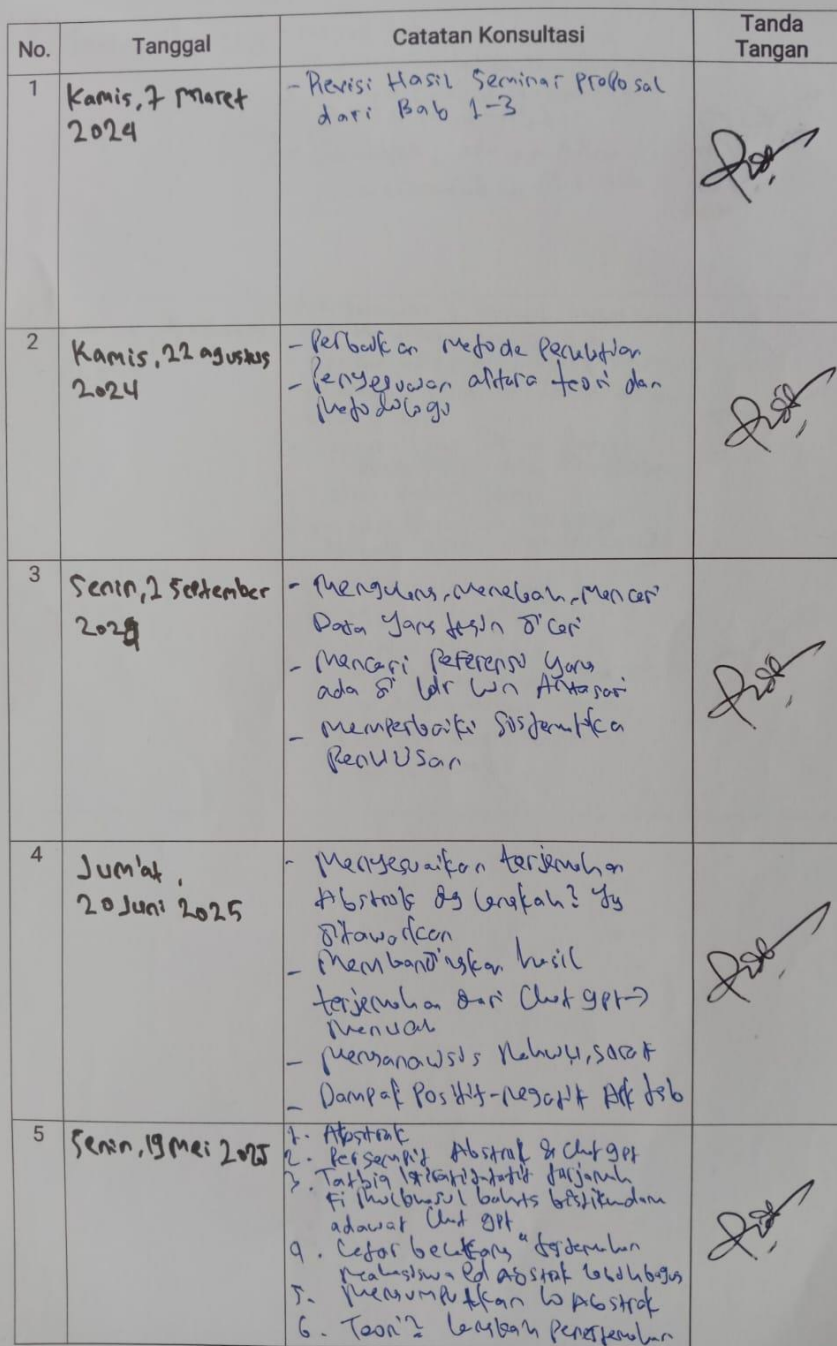 No.
Tanggal
Catatan Konsultasi
Tanda
Tangan
1
Kamis, 7 Maret
2024
- Revisi Hasil Seminar Proposal
dari Bab 1-3
2
Kamis, 22 agustus
2024
- Perbaikan metode Penelitian
- Penyesuaian antara teori dan
Metodologi
3
Senin, 2 September
2024
- Mengulang, Menelaah, Mencari
Data yang ingin dicari
- Mencari Referensi yang
ada di UIN Antasari
- Memperbaiki Sistematika
Penulisan
4
Jum'at,
20 Juni 2025
- Menyesuaikan terjemahan
Abstrak dg langkah2 yg
ditawarkan
- Membandingkan hasil
terjemahan dari Chat gpt →
Manual
- Menganalisis Nahwu, saraf
- Dampak Positif-negatif
5
Senin, 19 Mei 2025
1. Abstrak
2. Persempit Abstrak & Chat gpt
3. Tatbiq
adawat Chat gpt
4. terjemahan
mahasiswa Abstrak lebih bagus
5. Mengumpulkan 10 Abstrak
6. Teori2 langkah penerjemahan